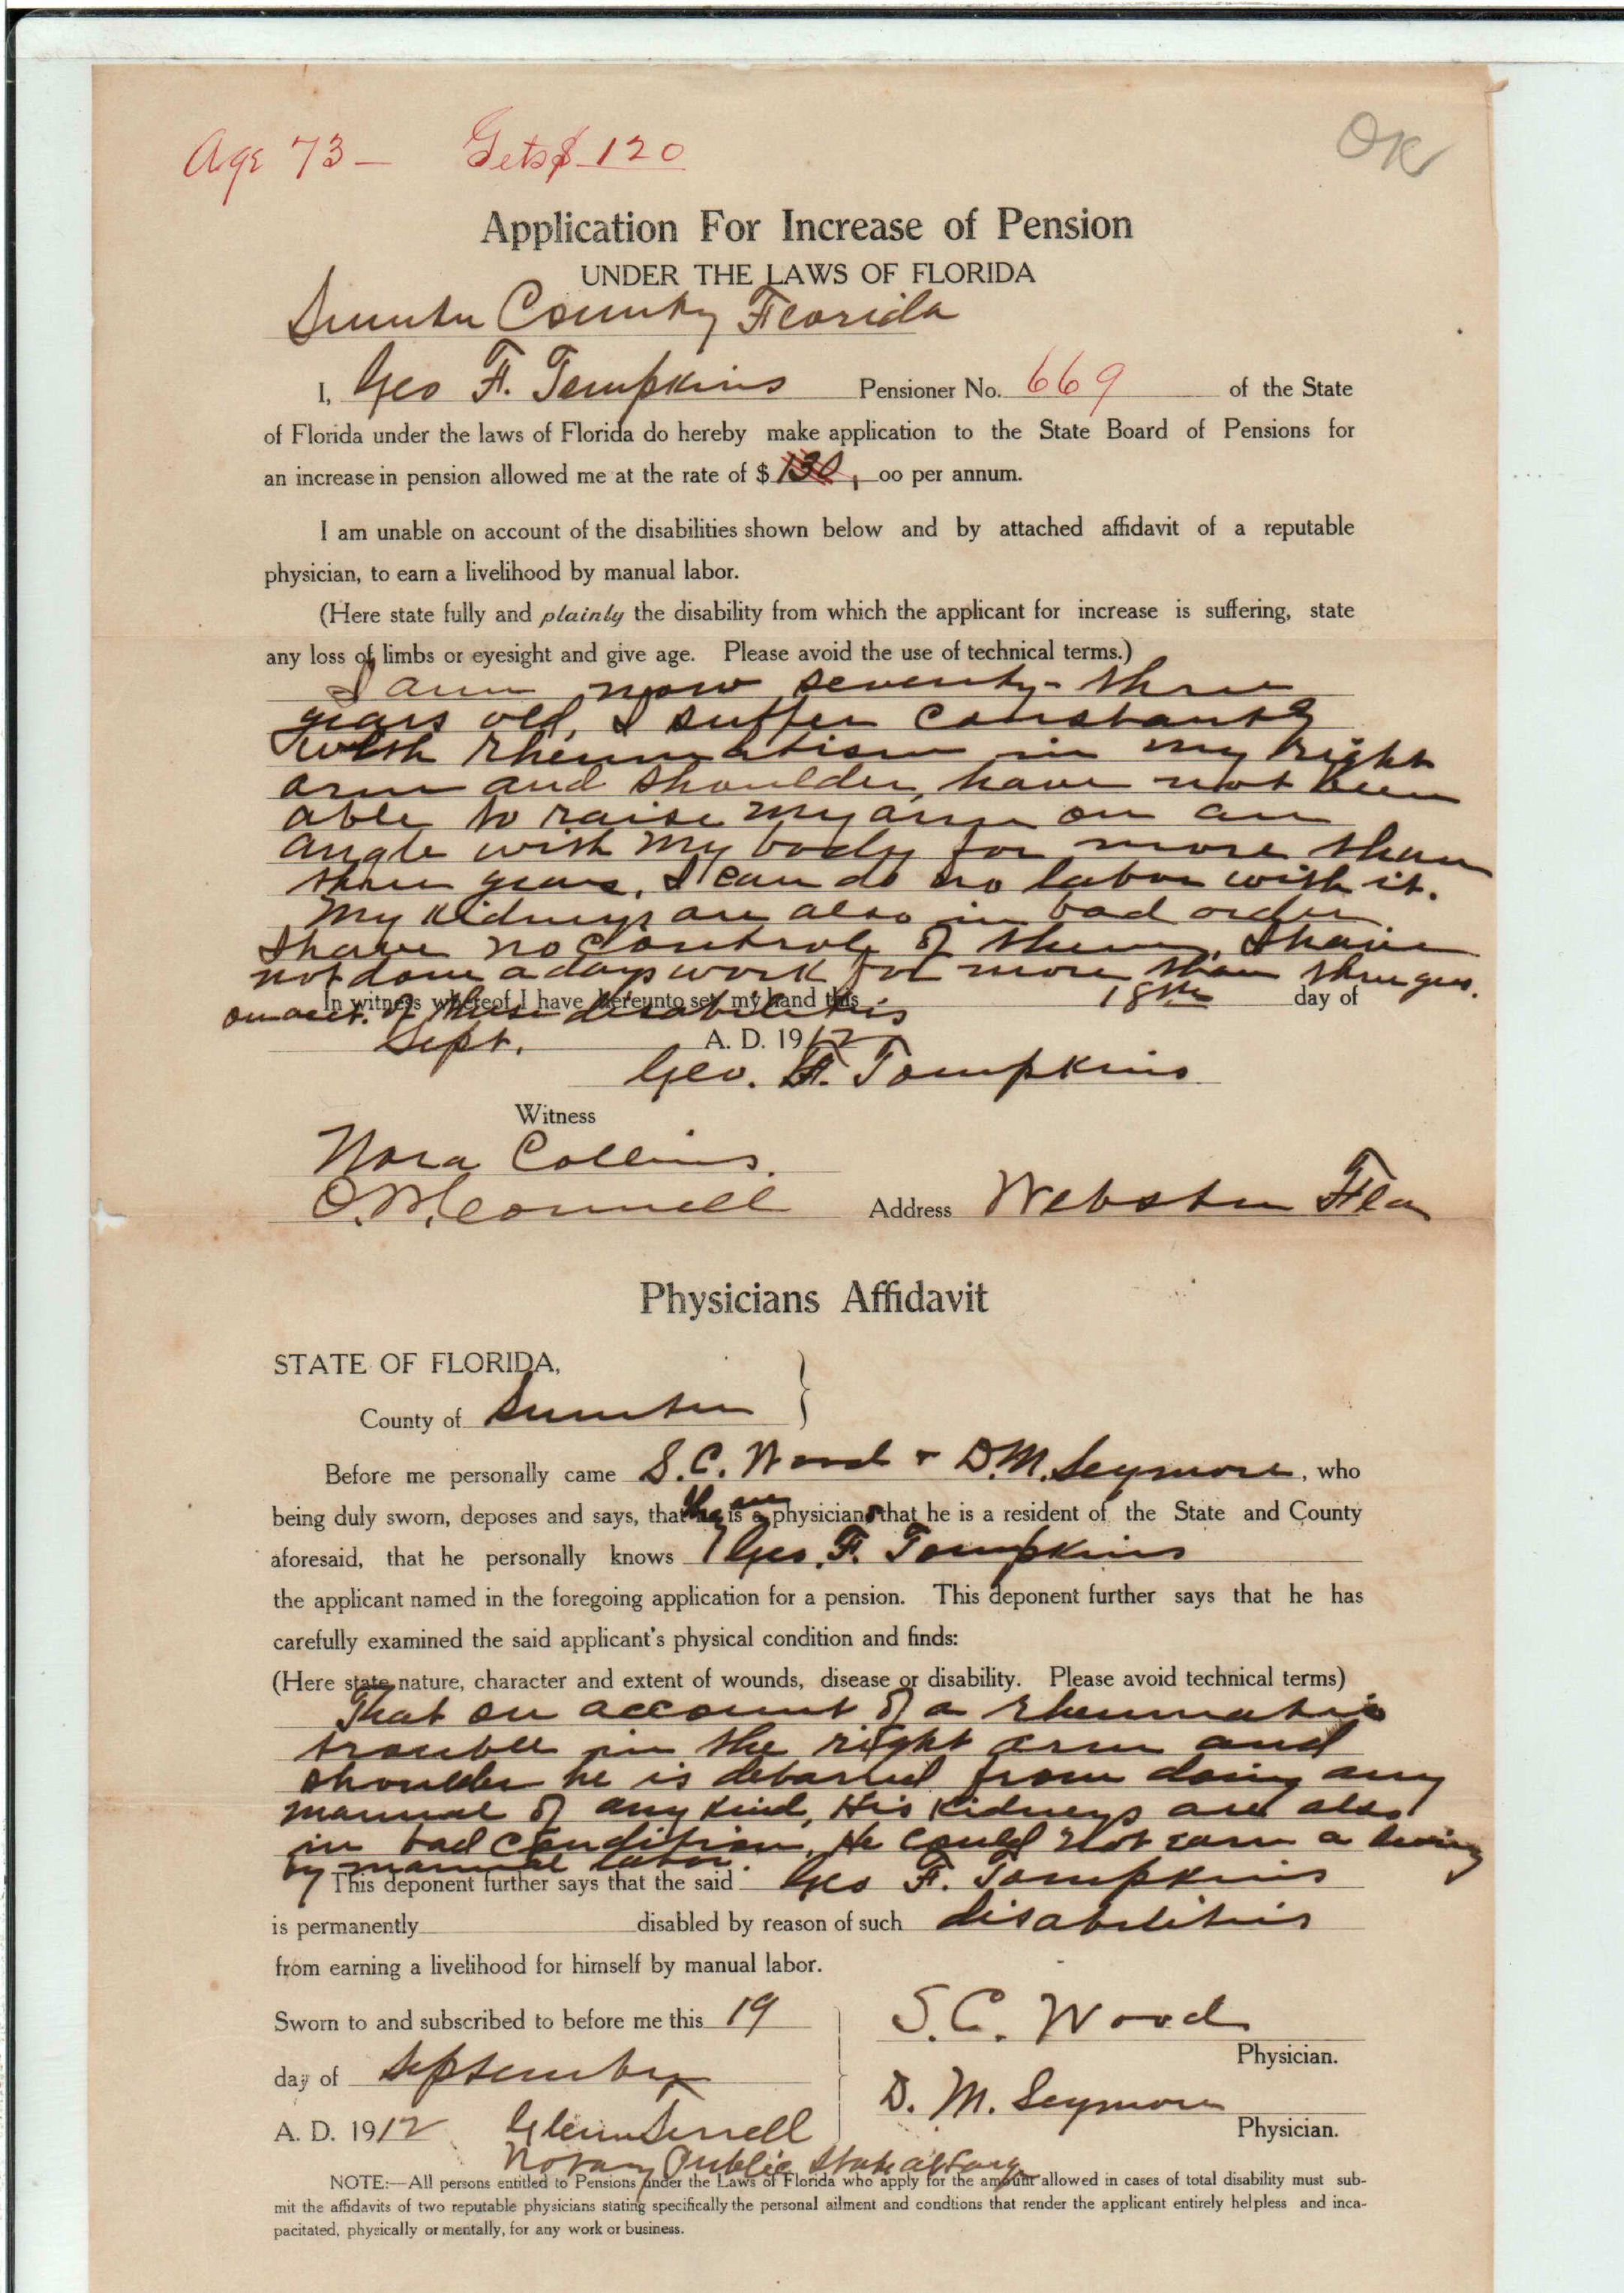 Age 73 — Gets $ 120
OK
Application For Increase of Pension
UNDER THE LAWS OF FLORIDA
Sumter County Florida
I, Geo F. Tompkins Pensioner No. 669 of the State
of Florida under the laws of Florida do hereby make application to the State Board of Pensions for
an increase in pension allowed me at the rate of $ 130, oo per annum.
I am unable on account of the disabilities shown below and by attached affidavit of a reputable
physician, to earn a livelihood by manual labor.
(Here state fully and plainly the disability from which the applicant for increase is suffering, state
any loss of limbs or eyesight and give age. Please avoid the use of technical terms.)
I am now seventy-three
years old, I suffer constantly
with rheumatism in my right
arm and shoulder, have not been
able to raise my arm on an
angle with my body for more than
three years. I can do no labor with it.
My kidneys are also in bad order
I have no control of them, I have
not done a days work for more than three yrs.
In witness whereof I have hereunto set my hand this 18th day of
on acct. of these disabilities
Sept. A. D. 1912
Geo. F. Tompkins
Witness
Nora Collins.
Connell Address Webster Fla
Physicians Affidavit
STATE OF FLORIDA, }
County of Sumter
Before me personally came S. C. Wood + D. M. Seymore, who
being duly sworn, deposes and says, that they are physicians that he is a resident of the State and County
aforesaid, that he personally knows Geo. F. Tompkins
the applicant named in the foregoing application for a pension. This deponent further says that he has
carefully examined the said applicant's physical condition and finds:
(Here state nature, character and extent of wounds, disease or disability. Please avoid technical terms)
That on account of a rheumatic
trouble in the right arm and
shoulder he is debarred from doing any
manual of any kind, His kidneys are also
in bad condition, He could not earn a living
by manual labor.
This deponent further says that the said Geo F. Tompkins
is permanently disabled by reason of such disabilities
from earning a livelihood for himself by manual labor.
Sworn to and subscribed to before me this 19
S. C. Wood
Physician.
day of September
D. M. Seymore
Physician.
A. D. 1912 Glenn Terrell
Notary Public State at Large
NOTE:—All persons entitled to Pensions under the Laws of Florida who apply for the amount allowed in cases of total disability must sub-
mit the affidavits of two reputable physicians stating specifically the personal ailment and condtions that render the applicant entirely helpless and inca-
pacitated, physically or mentally, for any work or business.